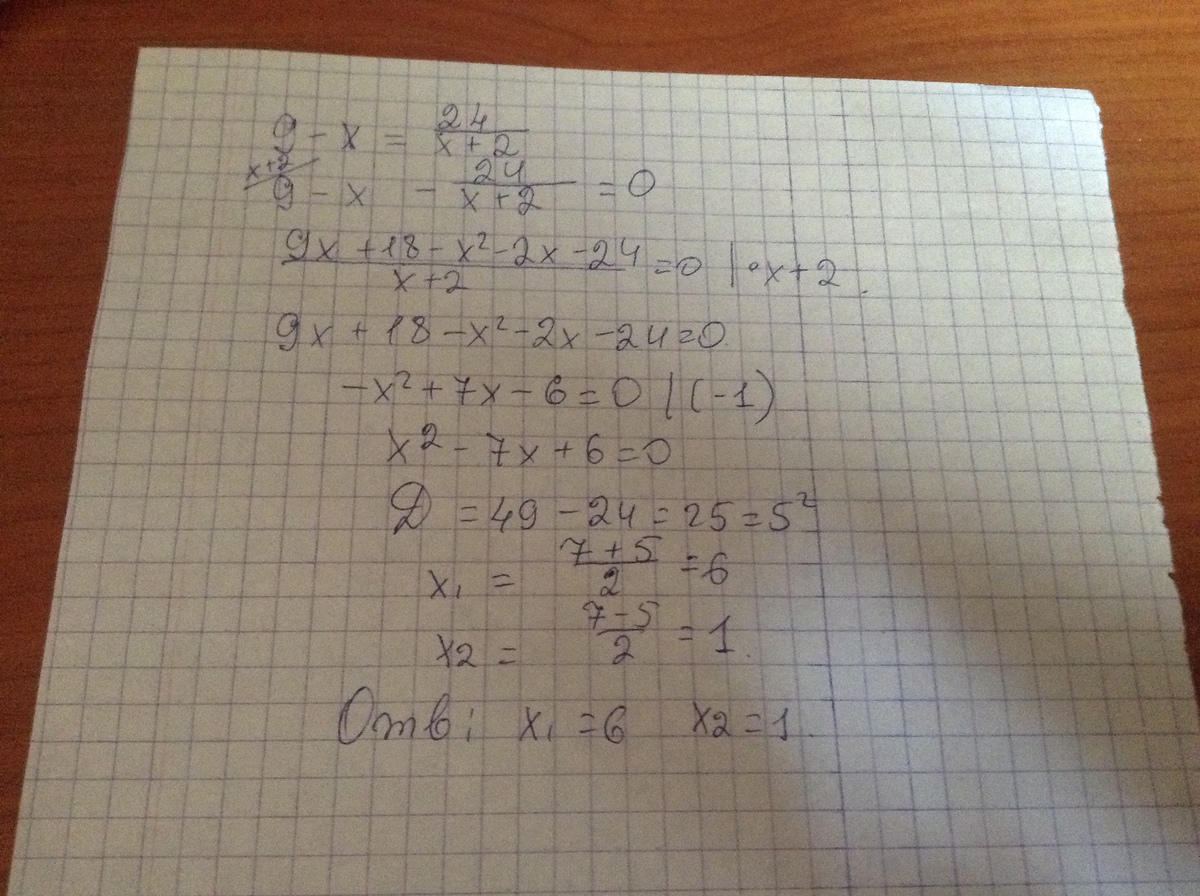 9 - x = 24/(x+2)
x+2/ 9 - x - 24/(x+2) = 0
(9x + 18 - x² - 2x - 24)/(x+2) = 0 | • x+2.
9x + 18 - x² - 2x - 24 = 0
-x² + 7x - 6 = 0 | (-1)
x² - 7x + 6 = 0
D = 49 - 24 = 25 = 5²
x₁ = (7+5)/2 = 6
x2 = (7-5)/2 = 1.
Отв: x₁ = 6 x2 = 1.